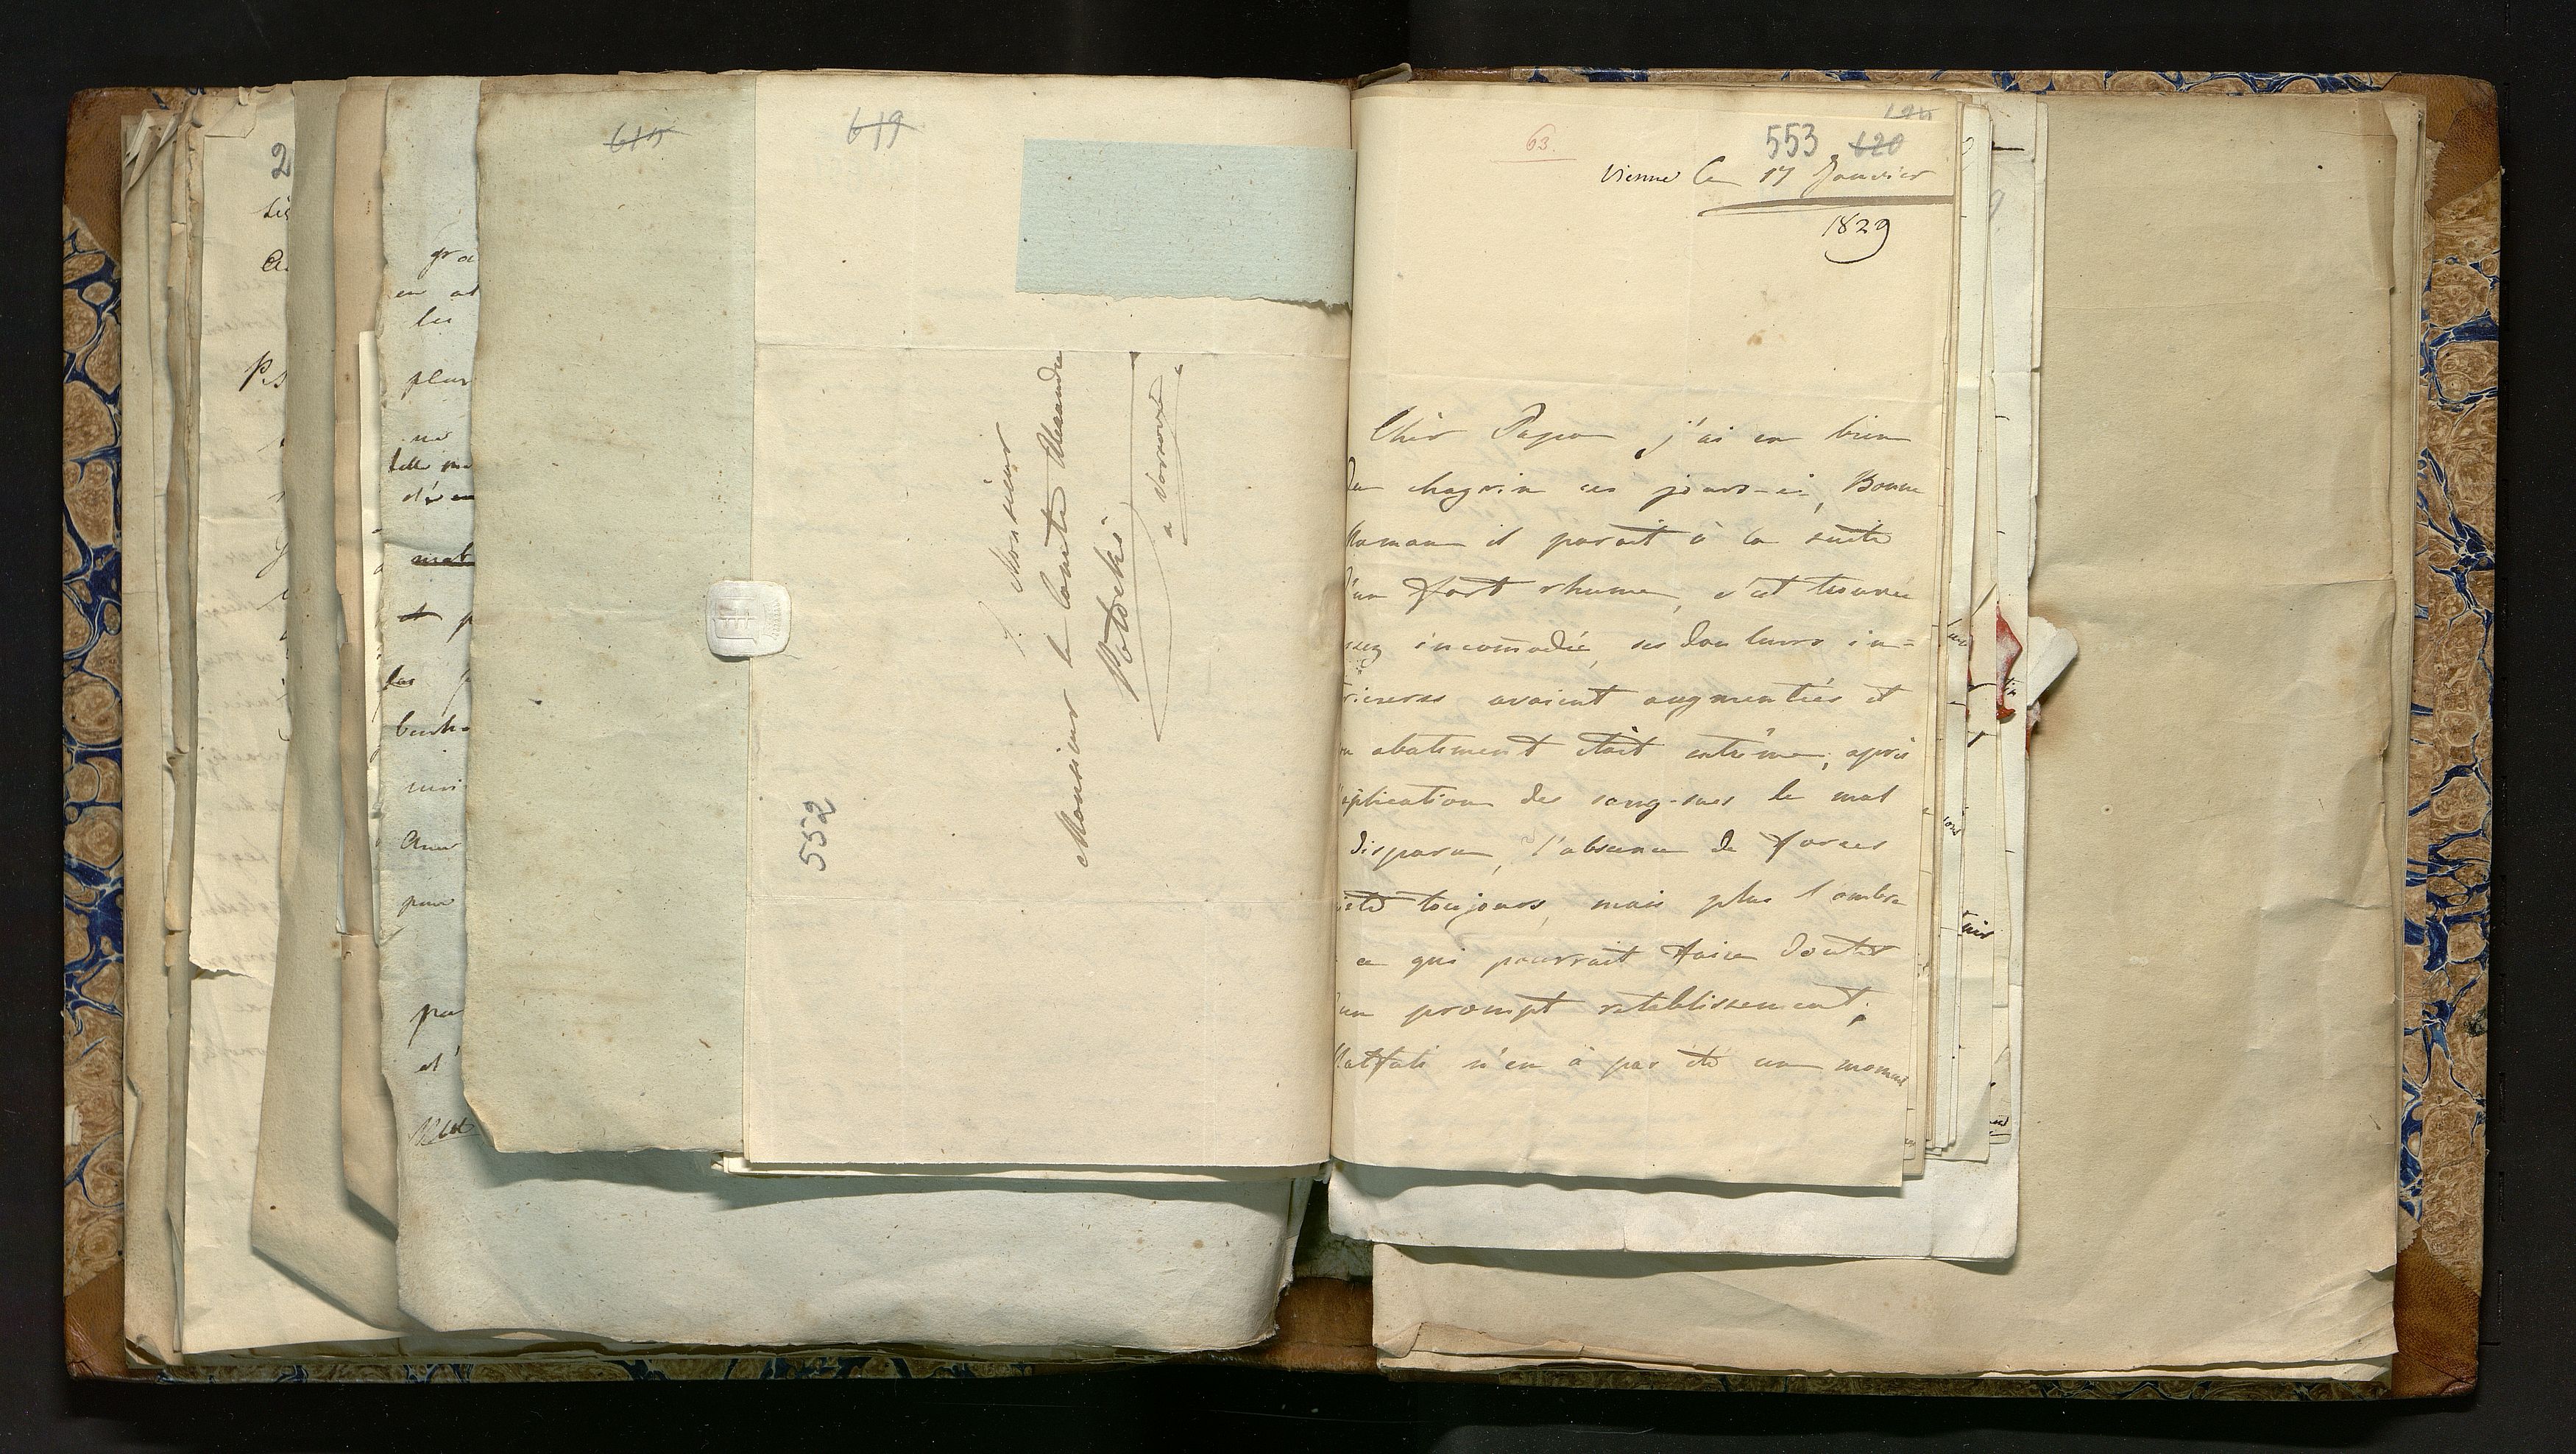 2
gra
les
plus
mal
pour
par
615
619
Monsieur
Monsieur le Comte Alexandre
Potocki
a Varsovie
552
124
63.
553 620
Vienne le 17 Janvier
1829
Cher Papa j'ai eu bien
du chagrin ces jours-ci, Bonne
Maman il parait à la suite
d'un fort rhume, s'est trouvée
ssez incomodée, ses douleurs in=
rieures avaient augmentées et
on abatement était extrême, après
l'aplication des sang-sues le mal
disparu, l'absence de forces
iste toujours, mais plus l'ombre
ce qui pourrait faire douter
d'un prompt retablissement.
Malfati n'en à pas été un moment